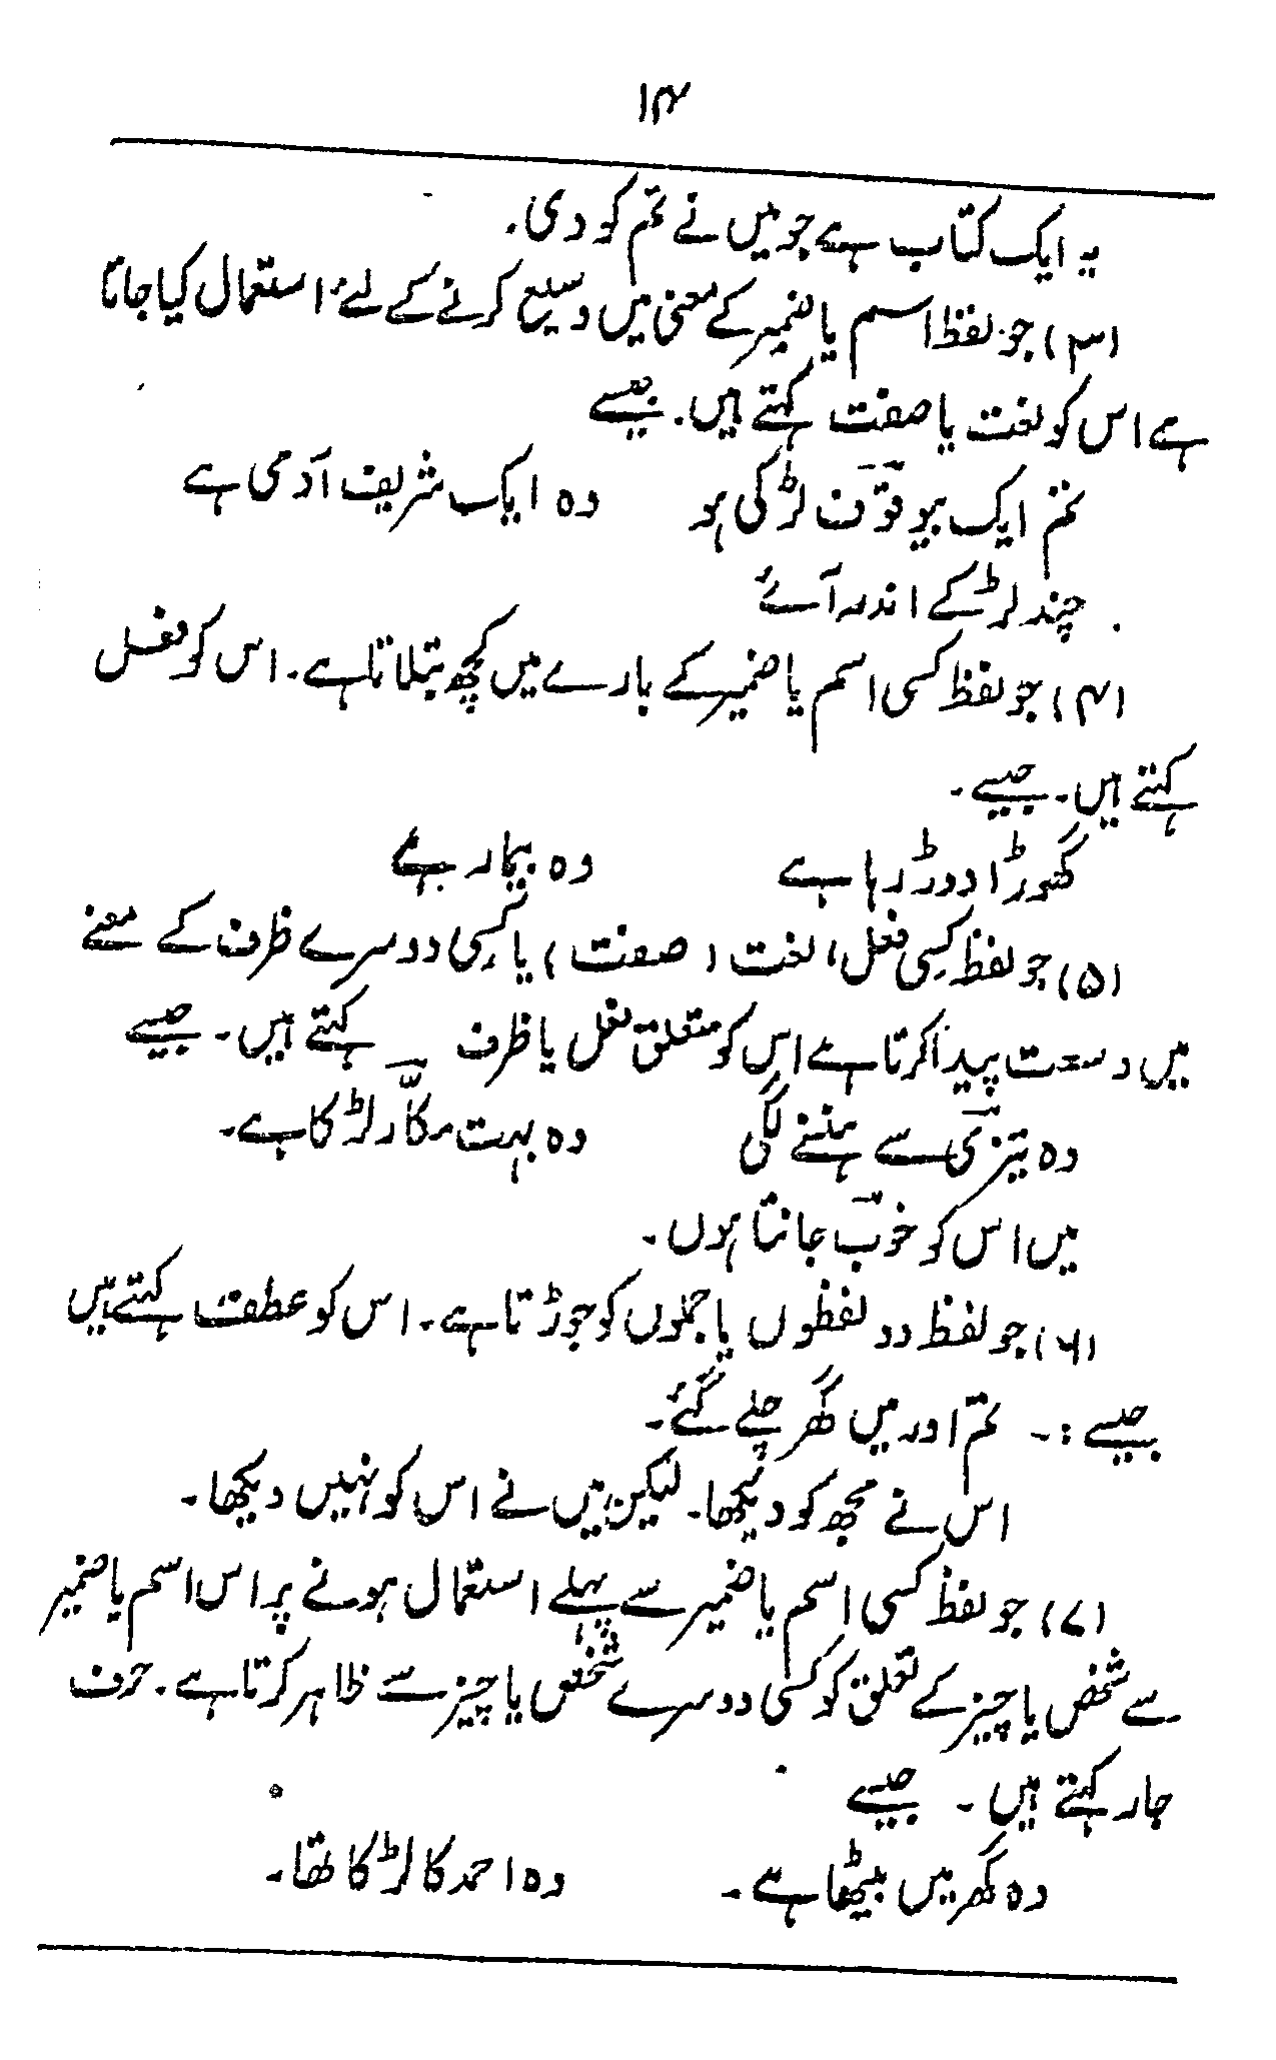 ۱۴
یہ ایک کتاب ہے جو میں نے تم کو دی۔
(۳) جو لفظ اسم یا ضمیر کے معنی میں وسیع کرنے کے لئے استعمال کیا جاتا
ہے اس کو نعت یا صفت کہتے ہیں۔ جیسے
تم ایک بیوقوف لڑکی ہو وہ ایک شریف آدمی ہے
چند لڑکے اندر آئے
(۴) جو لفظ کسی اسم یا ضمیر کے بارے میں کچھ بتلاتا ہے۔ اس کو فعل
کہتے ہیں۔ جیسے۔
گھوڑا دوڑ رہا ہے وہ بیمار ہے
(۵) جو لفظ کِسی فعل، نعت (صفت) یا کِسی دوسرے ظرف کے معنے
میں وسعت پیدا کرتا ہے اس کو متعلق فعل یا ظرف کہتے ہیں۔ جیسے
وہ تیزی سے ہنسنے لگی وہ بہت مکّار لڑکا ہے۔
میں اس کو خوب جانتا ہوں۔
(۶) جو لفظ دو لفظوں یا جملوں کو جوڑتا ہے۔ اس کو عطف کہتے ہیں
جیسے :۔ تم اور میں گھر چلے گئے۔
اس نے مجھ کو دیکھا۔ لیکن میں نے اس کو نہیں دیکھا۔
(۷) جو لفظ کسی اسم یا ضمیر سے پہلے استعمال ہونے پر اس اسم یا ضمیر
سے شخص یا چیز کے تعلق کو کسی دوسرے شخص یا چیز سے ظاہر کرتا ہے۔ حرف
جار کہتے ہیں ۔ جیسے
وہ گھر میں بیٹھا ہے۔ وہ احمد کا لڑکا تھا۔